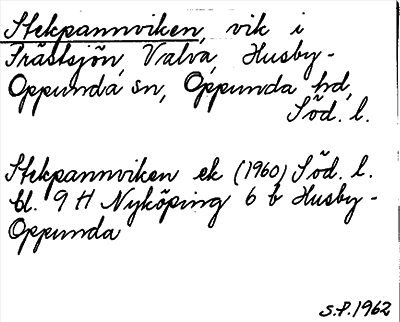 Stekpannviken, vik i
Trästsjön, Valva, Husby-
Oppunda sn, Oppunda hd,
Söd. l.
Stekpannviken ek (1960) Söd. l.
bl. 9 H Nyköping 6 b Husby-
Oppunda
S.P. 1962